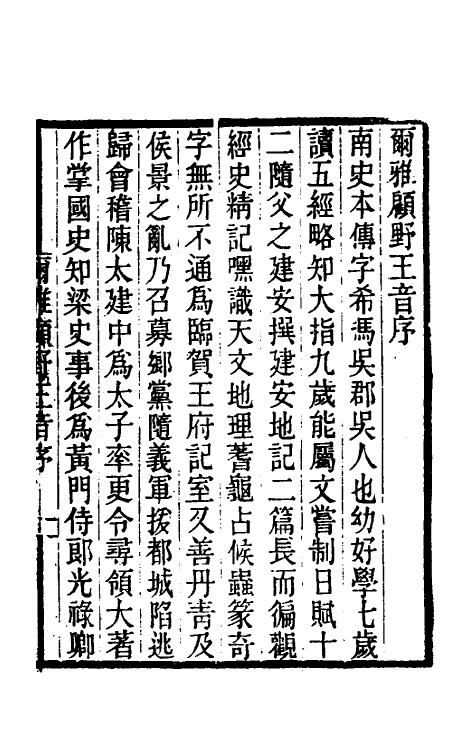 爾雅顧野王音序
南史本傳字希馮吳郡吳人也幼好學七歲
讀五經略知大指九歲能屬文嘗制日賦十
二隨父之建安撰建安地記二篇長而徧觀
經史精記嘿識天文地理蓍龜占候蟲篆奇
字無所不通爲臨賀王府記室又善丹青及
侯景之亂乃召募鄉黨隨義軍援都城陷逃
歸會稽陳太建中爲太子率更令尋領大著
作掌國史知梁史事後爲黃門侍郎光祿卿
爾雅顧野王音序
一